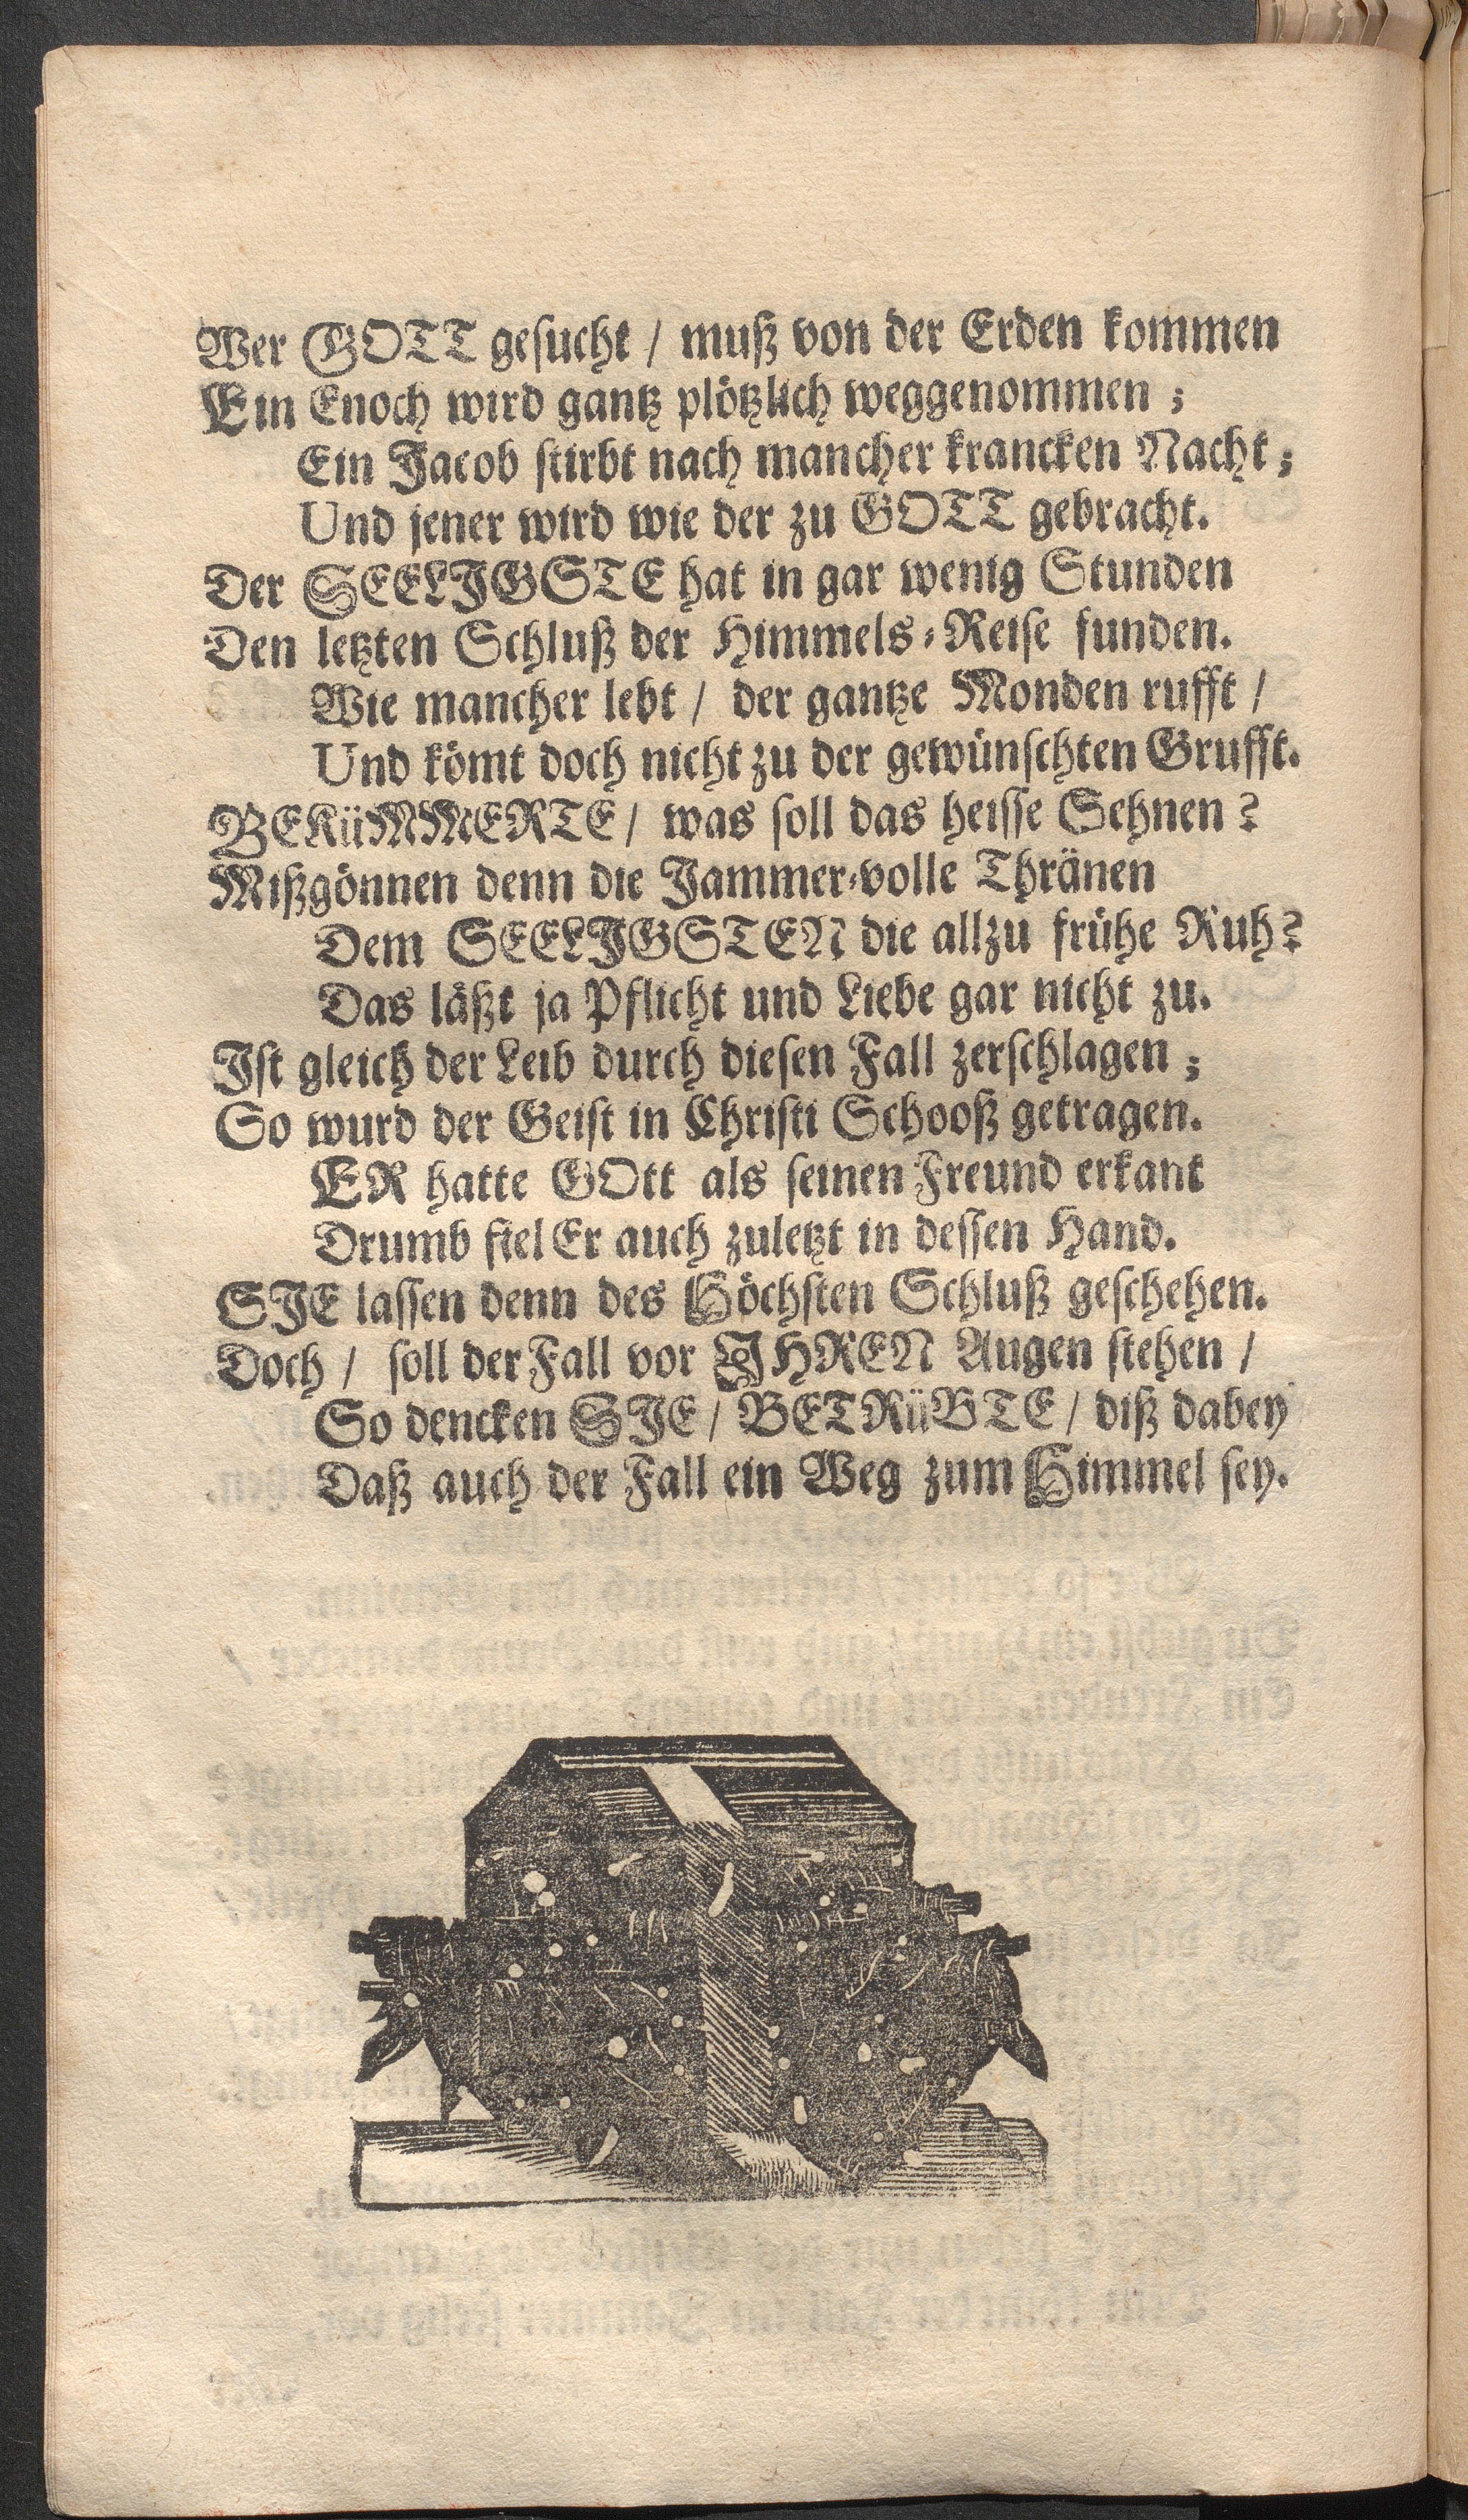 Wer GOTT gesucht / muß von der Erden kommen
Ein Enoch wird gantz plötzlich weggenommen ;
Ein Jacob stirbt nach mancher krancken Nacht ;
Und jener wird wie der zu GOTT gebracht.
Der SEELJGSTE hat in gar wenig Stunden
Den letzten Schluß der Himmels-Reise funden.
Wie mancher lebt / der gantze Monden rufft /
Und kömt doch nicht zu der gewünschten Grufft.
BEKüMMERTE / was soll das heisse Sehnen ?
Mißgönnen denn die Jammer-volle Thränen
Dem SEELJGSTEN die allzu frühe Ruh ?
Das läßt ja Pflicht und Liebe gar nicht zu.
Jst gleich der Leib durch diesen Fall zerschlagen ;
So wurd der Geist in Christi Schooß getragen.
ER hatte GOtt als seinen Freund erkant
Drumb fiel Er auch zuletzt in dessen Hand.
SJE lassen denn des Höchsten Schluß geschehen.
Doch / soll der Fall vor JHREN Augen stehen /
So dencken SJE / BETRüBTE / diß dabey
Daß auch der Fall ein Weg zum Himmel sey.